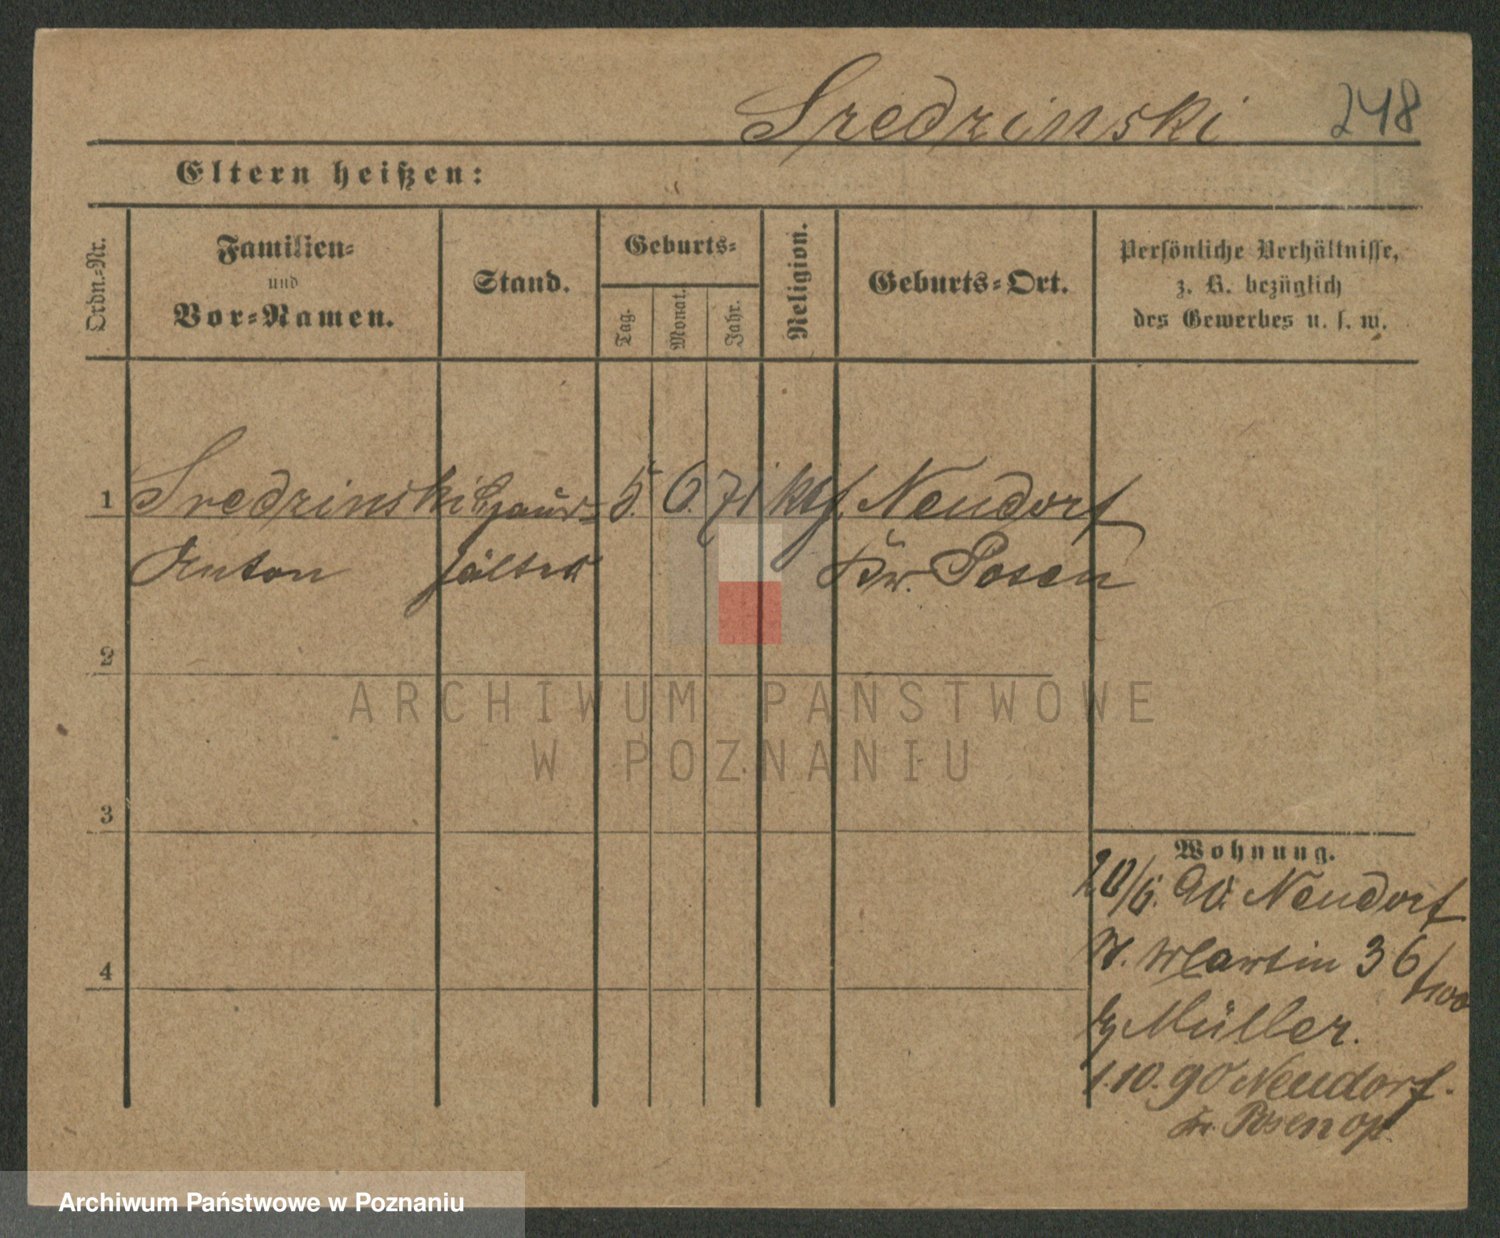 Sredzinski 248
Eltern heißen:
Ordn.-Nr.
Familien-
und
Vor-Namen.
Stand.
Geburts-
Tag.
Monat.
Jahr.
Religion.
Geburts-Ort.
Persönliche Verhältnisse,
z. B. bezüglich
des Gewerbes u. s. w.
1 Sredzinski 5. 6. 71 ktf. Neudorf
Anton Kr. Posen
2
ARCHIWUM PAŃSTWOWE
W POZNANIU
3
Wohnung.
20/5. 90. Neudorf
St. Martin 36
b/ Müller.
4
1.10.90 Neudorf.
Kr. Posen
Archiwum Państwowe w Poznaniu